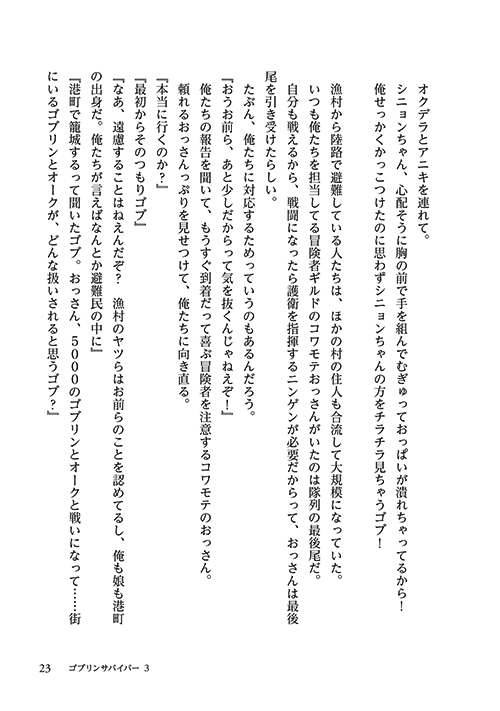 オクデラとアニキを連れて。
シニョンちゃん、心配そうに胸の前で手を組んでむぎゅっておっぱいが潰れちゃってるから！
俺せっかくかっこつけたのに思わずシニョンちゃんの方をチラチラ見ちゃうゴブ！
漁村から陸路で避難している人たちは、ほかの村の住人も合流して大規模になっていた。
いつも俺たちを担当してる冒険者ギルドのコワモテおっさんがいたのは隊列の最後尾だ。
自分も戦えるから、戦闘になったら護衛を指揮するニンゲンが必要だからって、おっさんは最後
尾を引き受けたらしい。
たぶん、俺たちに対応するためっていうのもあるんだろう。
『おうお前ら、あと少しだからって気を抜くんじゃねえぞ！』
俺たちの報告を聞いて、もうすぐ到着だって喜ぶ冒険者を注意するコワモテのおっさん。
頼れるおっさんっぷりを見せつけて、俺たちに向き直る。
『本当に行くのか？』
『最初からそのつもりゴブ』
『なあ、遠慮することはねえんだぞ？　漁村のヤツらはお前らのことを認めてるし、俺も娘も港町
の出身だ。俺たちが言えばなんとか避難民の中に』
『港町で籠城するって聞いたゴブ。おっさん、５０００のゴブリンとオークと戦いになって……街
にいるゴブリンとオークが、どんな扱いされると思うゴブ？』
23 ゴブリンサバイバー 3